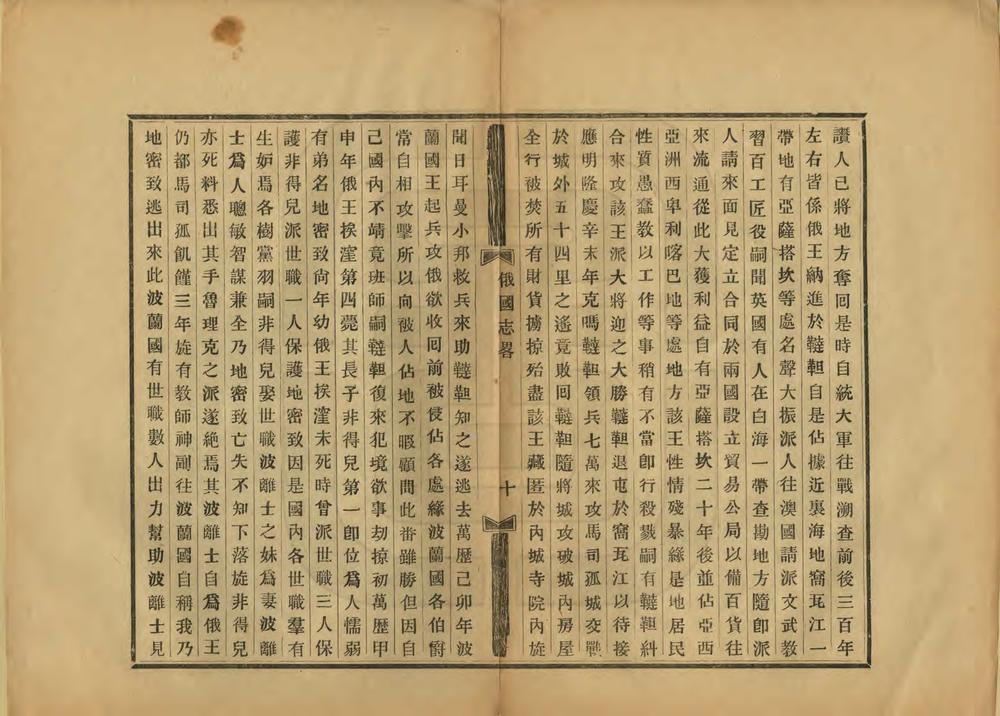 讚人已將地方奪囘是時自統大軍往戰溯查前後三百年
左右皆係俄王納進於韃靼自是佔據近裏海地窩瓦江一
帶地有亞薩搭坎等處名聲大振派人往澳國請派文武教
習百工匠役嗣聞英國有人在白海一帶查勘地方隨卽派
人請來面見定立合同於兩國設立貿易公局以備百貨往
來流通從此大獲利益自有亞薩搭坎二十年後並佔亞西
亞洲西卑利喀巴地等處地方該王性情殘暴緣是地居民
性質愚蠢教以工作等事稍有不當卽行殺戮嗣有韃靼糾
合來攻該王派大將迎之大勝韃靼退屯於窩瓦江以待接
應明隆慶辛未年克嗎韃靼領兵七萬來攻馬司孤城交戰
於城外五十四里之遙竟敗囘韃靼隨將城攻破城內房屋
全行被焚所有財貨擄掠殆盡該王藏匿於內城寺院內旋
俄國志畧
十
聞日耳曼小邦救兵來助韃靼知之遂逃去萬歷己卯年波
蘭國王起兵攻俄欲收囘前被侵佔各處緣波蘭國各伯爵
常自相攻擊所以向被人佔地不暇顧問此番雖勝但因自
己國內不靖竟班師嗣韃靼復來犯境欲事刦掠初萬歷甲
申年俄王挨㴐第四薨其長子非得兒第一卽位爲人懦弱
有弟名地密致尙年幼俄王挨㴐未死時曾派世職三人保
護非得兒派世職一人保護地密致因是國內各世職羣有
生妬焉各樹黨羽嗣非得兒娶世職波離士之妹爲妻波離
士爲人聰敏智謀兼全乃地密致亡失不知下落旋非得兒
亦死料悉出其手魯理克之派遂絕焉其波離士自爲俄王
仍都馬司孤飢饉三年旋有教師神副往波蘭國自稱我乃
地密致逃出來此波蘭國有世職數人出力幫助波離士見